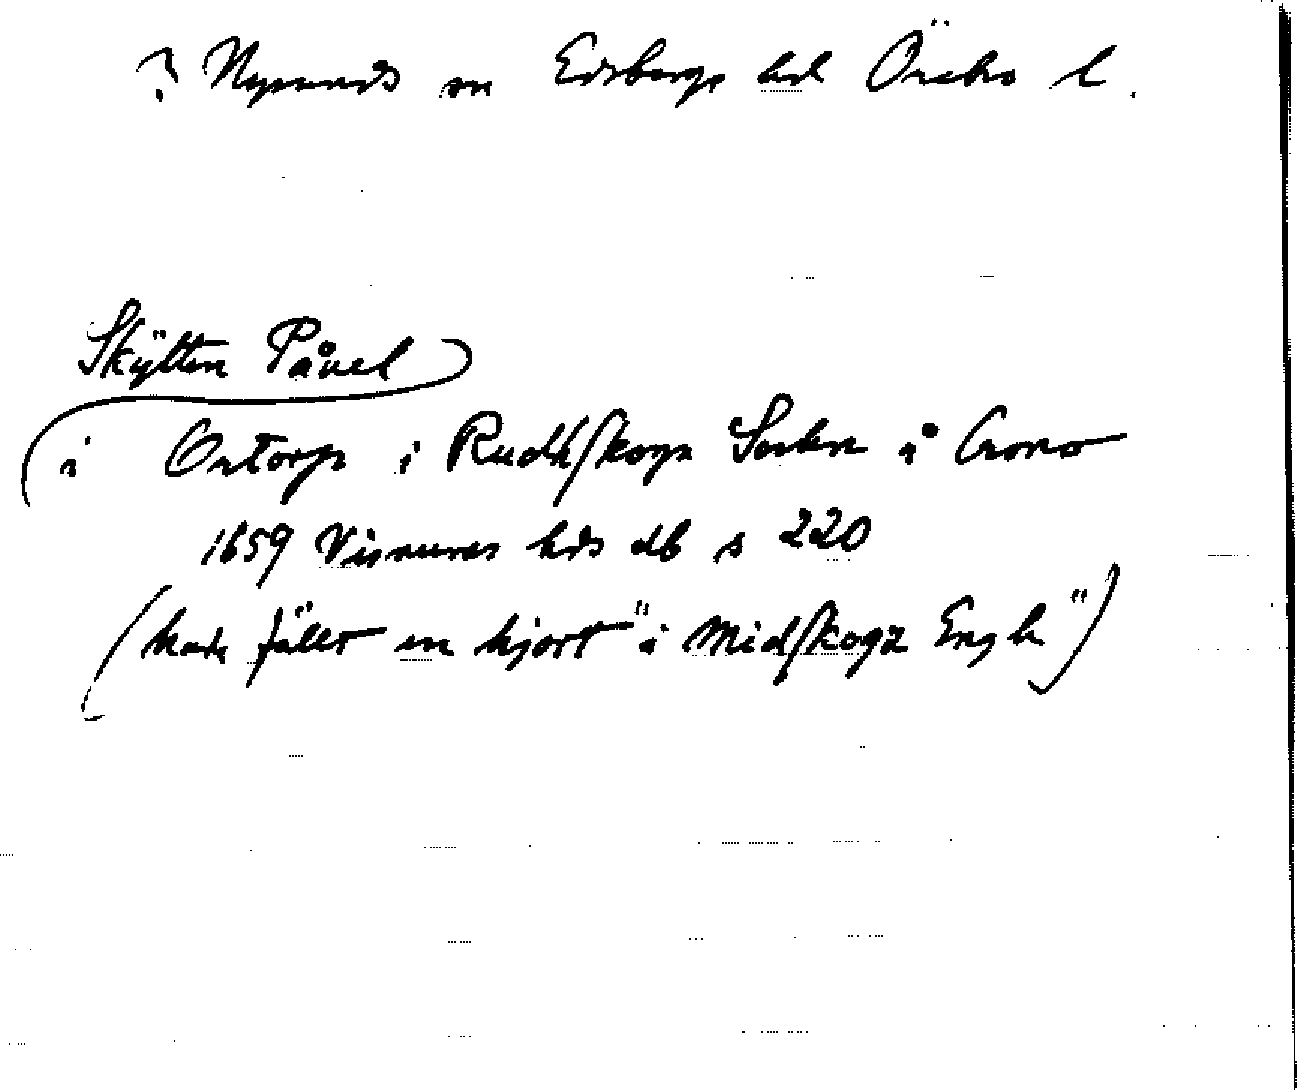 ? Nysunds sn Edsbergs hd Örebro l.
Skÿtten Påvel
i Ortorp i Rudhskoga Sochn å Crono
1659 Visnums hds db s 220
(hade fällt en hjort "i Midskogz Engh")